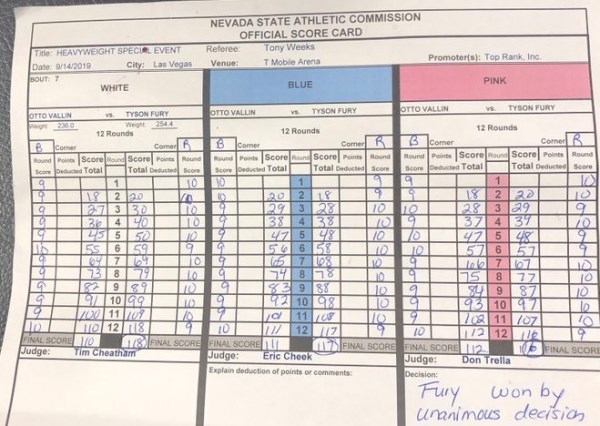 NEVADA STATE ATHLETIC COMMISSION
OFFICIAL SCORE CARD
Title: HEAVYWEIGHT SPECIAL EVENT Referee: Tony Weeks
Date: 9/14/2019 City: Las Vegas Venue: T Mobile Arena Promoter(s): Top Rank, Inc.
BOUT: 7
WHITE BLUE PINK
OTTO VALLIN vs. TYSON FURY OTTO VALLIN vs. TYSON FURY OTTO VALLIN vs. TYSON FURY
Weight 236.0 Weight 254.4
12 Rounds 12 Rounds 12 Rounds
B Corner Corner R B Corner Corner R B Corner Corner R
Round Score Points Deducted Score Total Round Score Total Points Deducted Round Score Round Score Points Deducted Score Total Round Score Total Points Deducted Round Score Round Score Points Deducted Score Total Round Score Total Points Deducted Round Score
9 1 10 10 1 9 9 1 10
9 18 2 20 10 10 20 2 18 9 9 18 2 20 10
9 27 3 30 10 9 29 3 28 10 10 28 3 29 9
9 36 4 40 10 9 38 4 38 10 9 37 4 39 10
9 45 5 50 10 9 47 5 48 10 10 47 5 48 9
10 55 6 59 9 9 56 6 58 10 10 57 6 57 9
9 64 7 69 10 9 65 7 68 10 9 66 7 67 10
9 73 8 79 10 9 74 8 78 10 9 75 8 77 10
9 82 9 89 10 9 83 9 88 10 9 84 9 87 10
9 91 10 99 10 9 92 10 98 10 9 93 10 97 10
9 100 11 109 10 9 101 11 108 10 9 102 11 107 10
10 110 12 118 9 10 111 12 117 9 10 112 12 116 9
FINAL SCORE 110 118 FINAL SCORE FINAL SCORE 111 117 FINAL SCORE FINAL SCORE 112 116 FINAL SCORE
Judge: Tim Cheatham Judge: Eric Cheek Judge: Don Trella
Explain deduction of points or comments: Decision:
Fury won by
unanimous decision